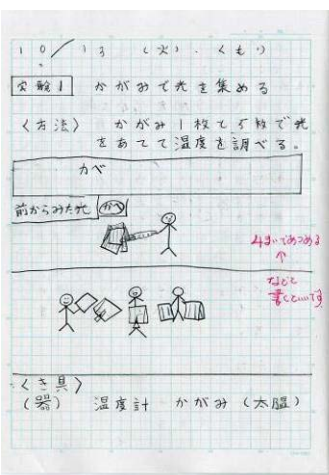 10/13 (火).くもり
実験1 かがみで光を集める
〈方法〉 かがみ1枚と5枚で光
をあてて温度を調べる。
カベ
前からみた光 かべ
4まいであつめる
↑
などと
書くといいです
〈き具〉
(器) 温度計 かがみ (太陽)